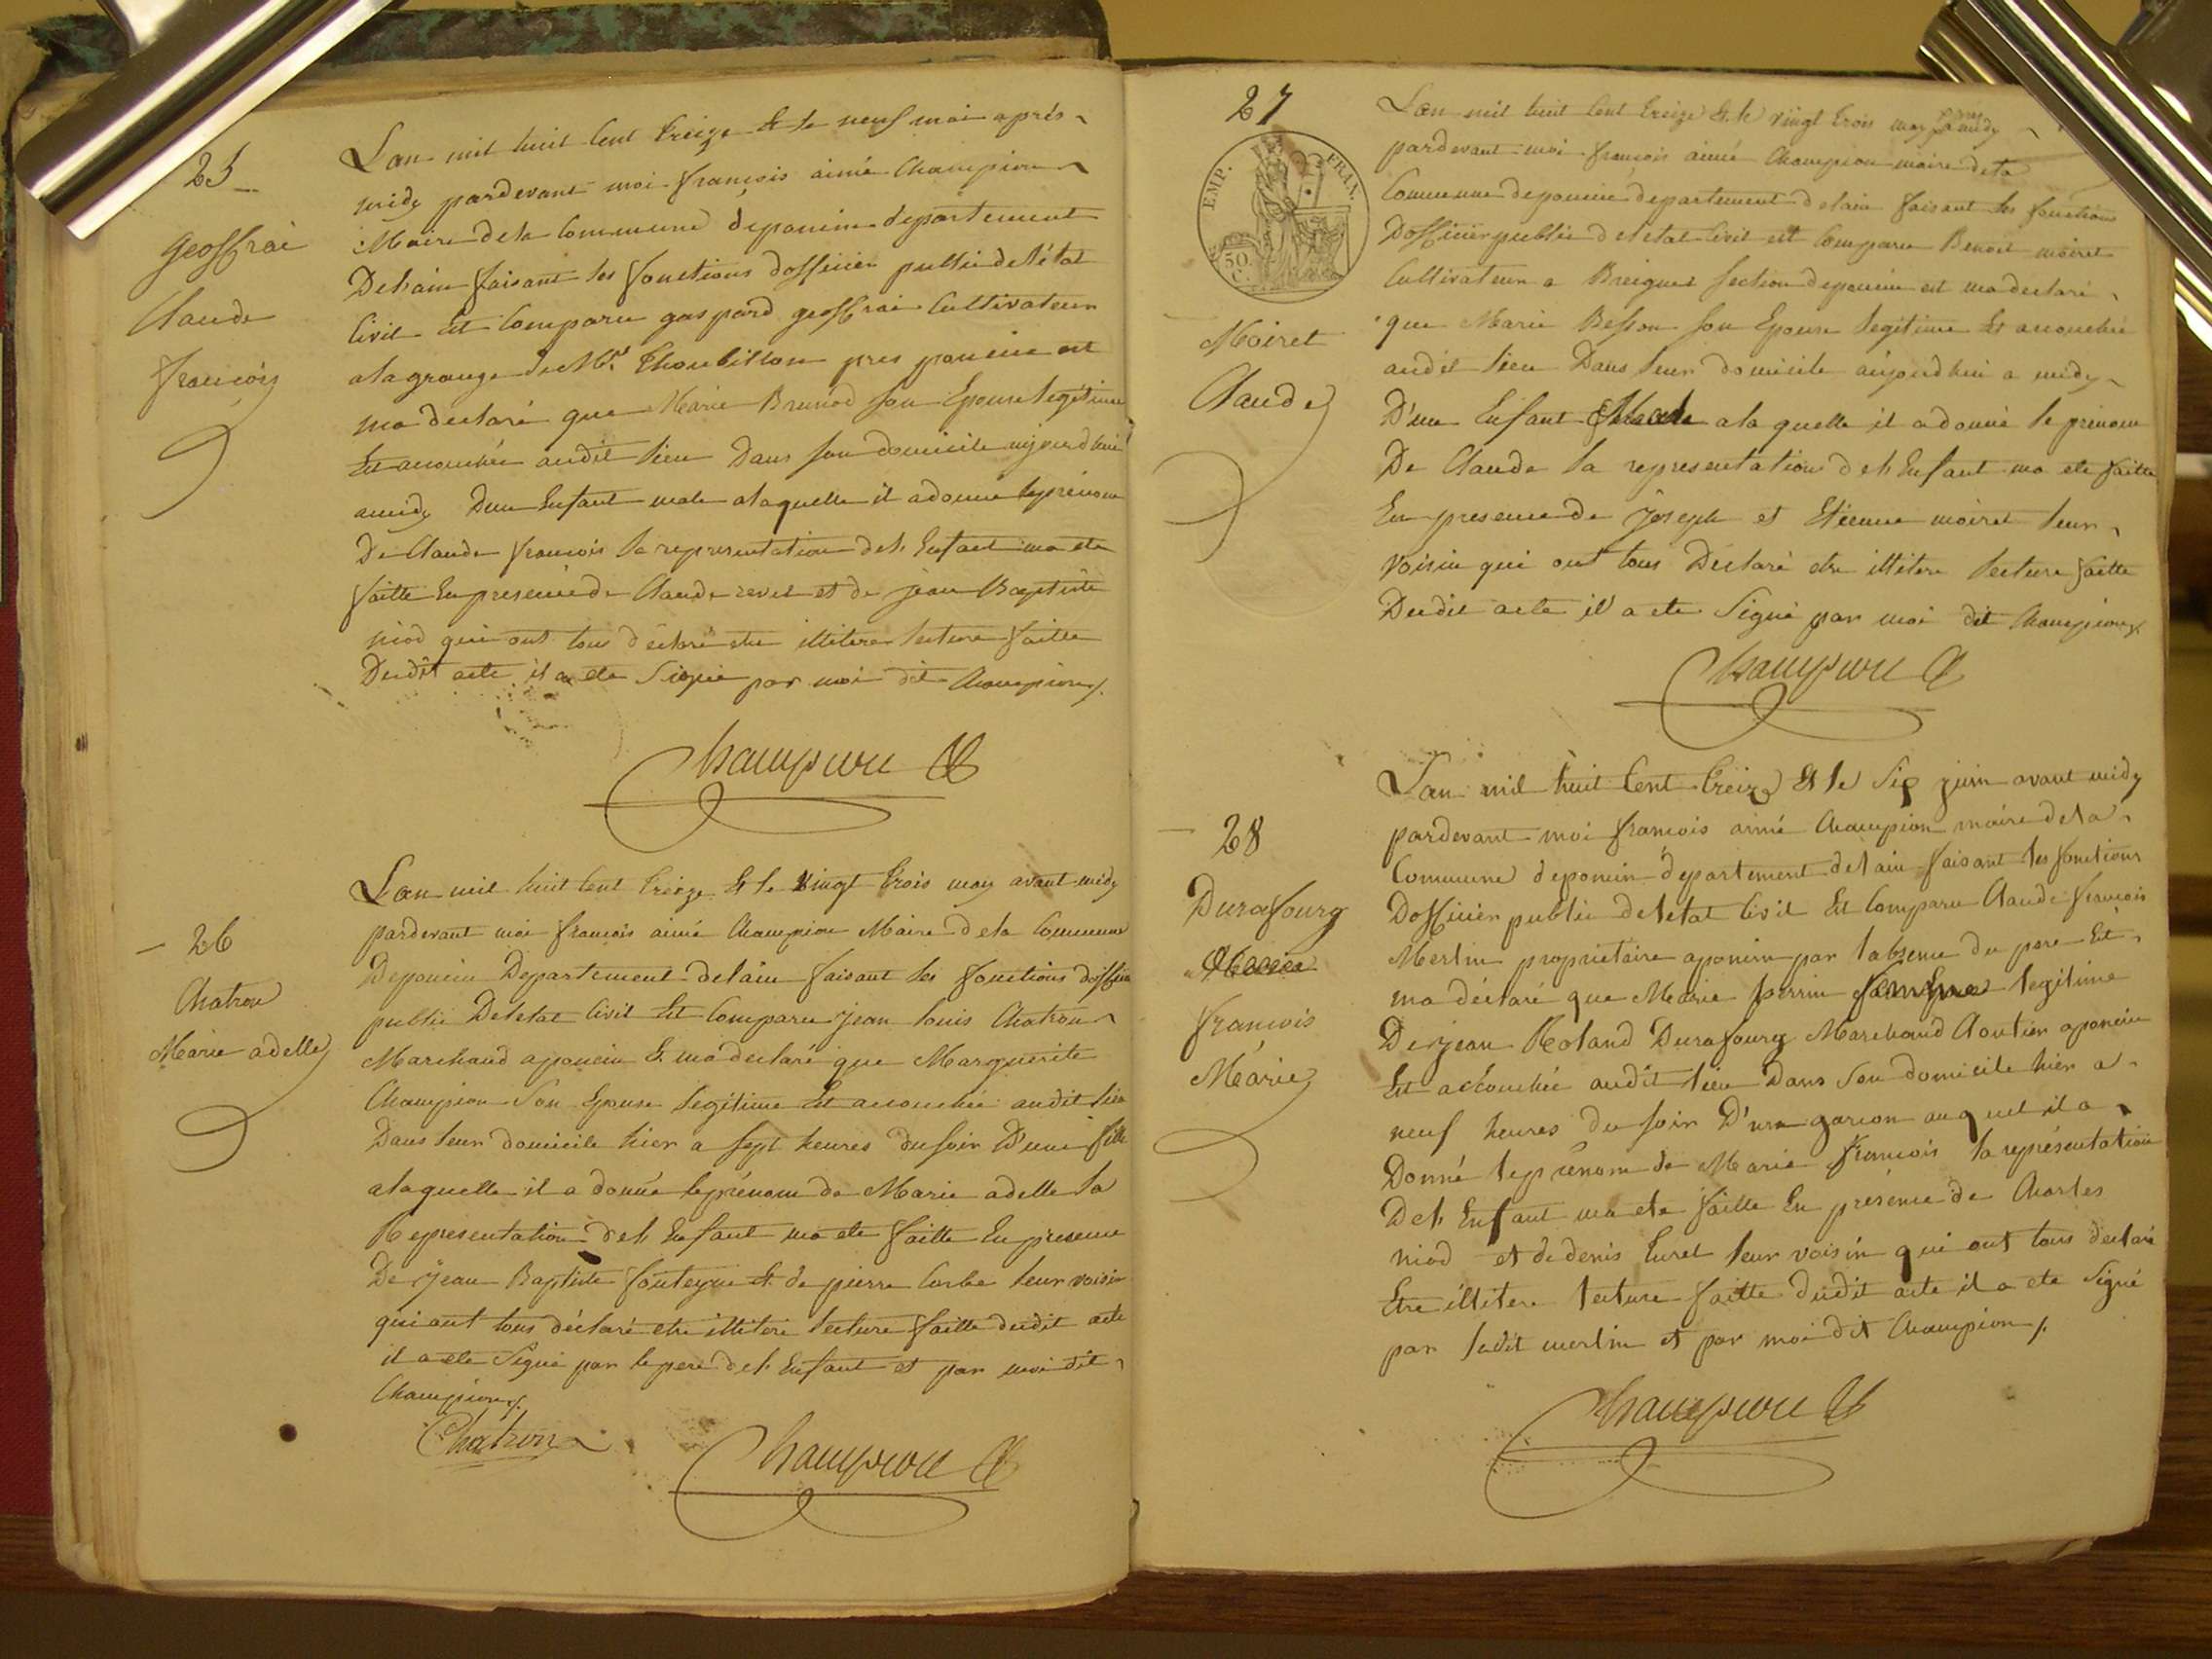 25
Geoffrai
Claude
françois
L'an mil huit Cent treize Et le neuf mai après
midy pardevant moi françois aimé Champion
Maire dela Commune deponcin departement
Delain faisant les fonctions dofficier public deletat
Civil Est Comparu gaspard geoffrai Cultivateur
alagrange de Mr. Thoubillon pres poncin est
ma declaré que Marie Brunod son Epouse legitime
Est accouchée audit lieu Dans son domicile aujourdhui
amidy Dun Enfant male alaquelle il adonné leprénom
De Claude françois la representation det Enfant ma ete
faitte En presence de Claude revel et de jean Baptiste
niod qui ont tous déclaré etre illitere lecture faitte
Dudit acte il a ete Signé par moi dit Champion
Champion
26
Chatron
Marie adelle
L'an mil huit Cent treize Et le vingt trois may avant midy
pardevant moi françois aimé Champion Maire dela Commune
Deponcin Departement delain faisant les fonctions dofficier
public Deletat Civil Est Comparu jean louis Chatron
Marchand aponcin Et ma declaré que Marguerite
Champion Son Epouse legitime Est accouchée audit lieu
Dans leur domicile hier a sept heures du soir D'une fille
alaquelle il a donné leprénom de Marie adelle la
Representation det Enfant ma ete faitte En presence
De jean Baptiste et de pierre Corbe leur voisin
qui ont tous déclaré etre illitere lecture faitte dudit acte
il a ete Signé par le pere det Enfant et par moi dit
Champion
Chatron
Champion
27
EMP. FRAN.
50 C.
Moiret
Claude
L'an mil huit Cent treize Et le vingt trois may apres midy
pardevant moi françois aimé Champion maire dela
Commune deponcin departement delain faisant les fonctions
Dofficier public deletat Civil est Comparu Benoit moiret
Cultivateur a Breignes section deponcin est ma declaré
que Marie Besson son Epouse legitime Est accouchée
audit lieu Dans leur domicile aujourdhui a midy
D'un Enfant Male alaquelle il adonné le prénom
De Claude la representation det Enfant ma ete faitte
En presence de Joseph et Etienne moiret leur
voisin qui ont tous Declaré etre illitere lecture faitte
Dudit acte il a ete Signé par moi dit Champion
Champion
28
Durafourg
françois
Marie
L'an mil huit Cent treize Et le Six juin avant midy
pardevant moi françois aimé Champion maire dela
Commune deponcin departement delain faisant les fonctions
Dofficier public deletat Civil Est Comparu Claude françois
Merlin propriétaire aponcin par labsence du pere Est
ma déclaré que Marie perrin femme legitime
De jean Roland Durafourg Marchand Cloutier aponcin
Est accouchée audit lieu Dans son domicile hier a
neuf heures du soir D'un garcon auquel il a
Donné leprénom de Marie françois la représentation
Det Enfant ma ete faitte En présence de Charles
niod et de denis Curet leur voisin qui ont tous declaré
Etre illitere lecture faitte dudit acte il a ete Signé
par ledit merlin et par moi dit Champion
Champion